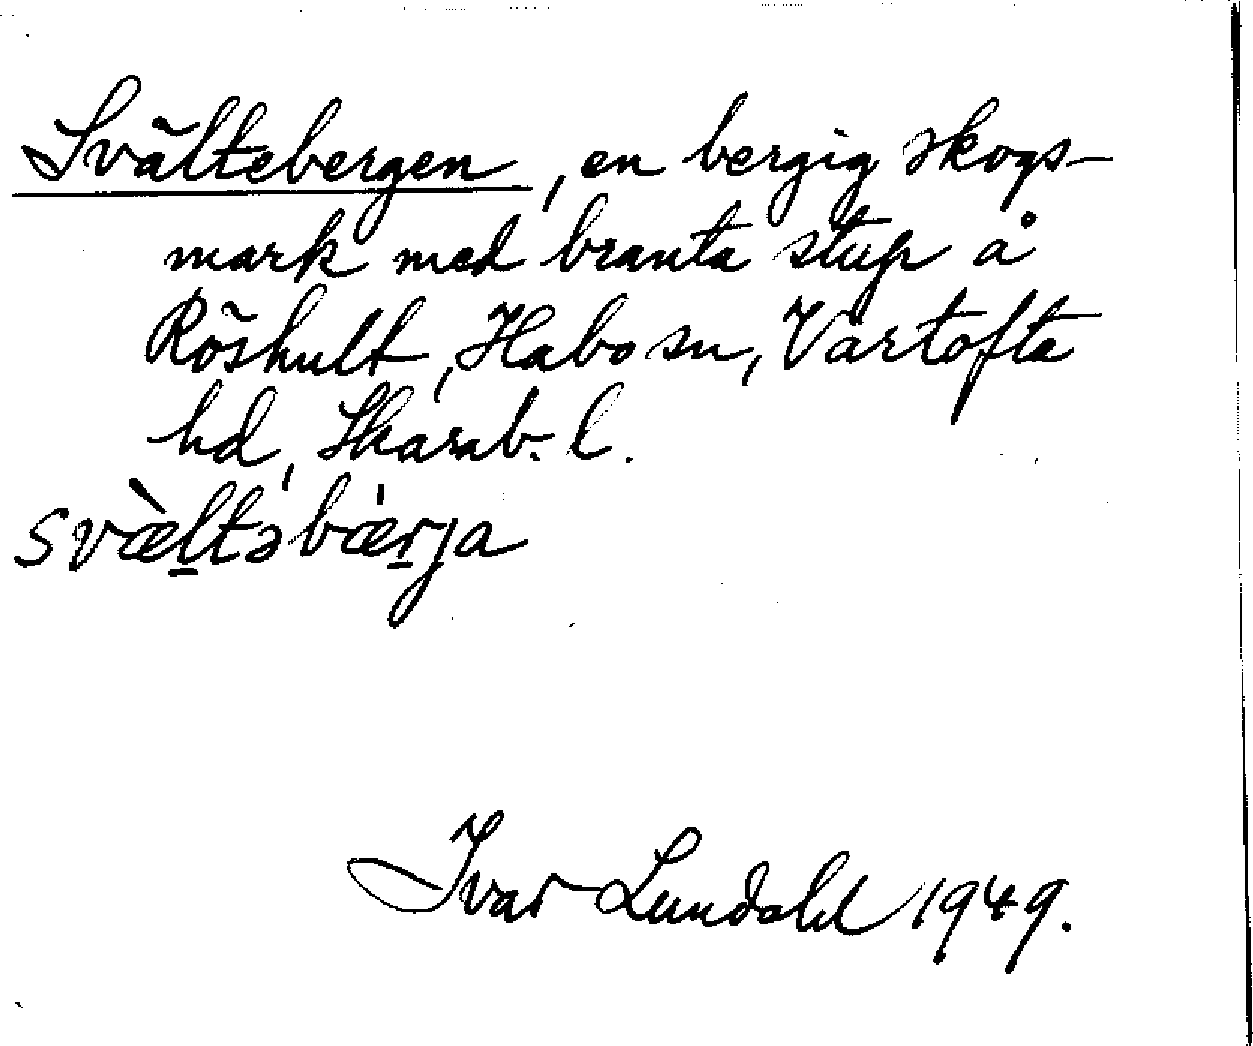 Svältebergen, en bergig skogs-
mark med branta stup å
Röshult, Habo sn, Vartofta
hd, Skarab. l.
svæ̀ltəbæ̍rja
Ivar Lundahl 1949.